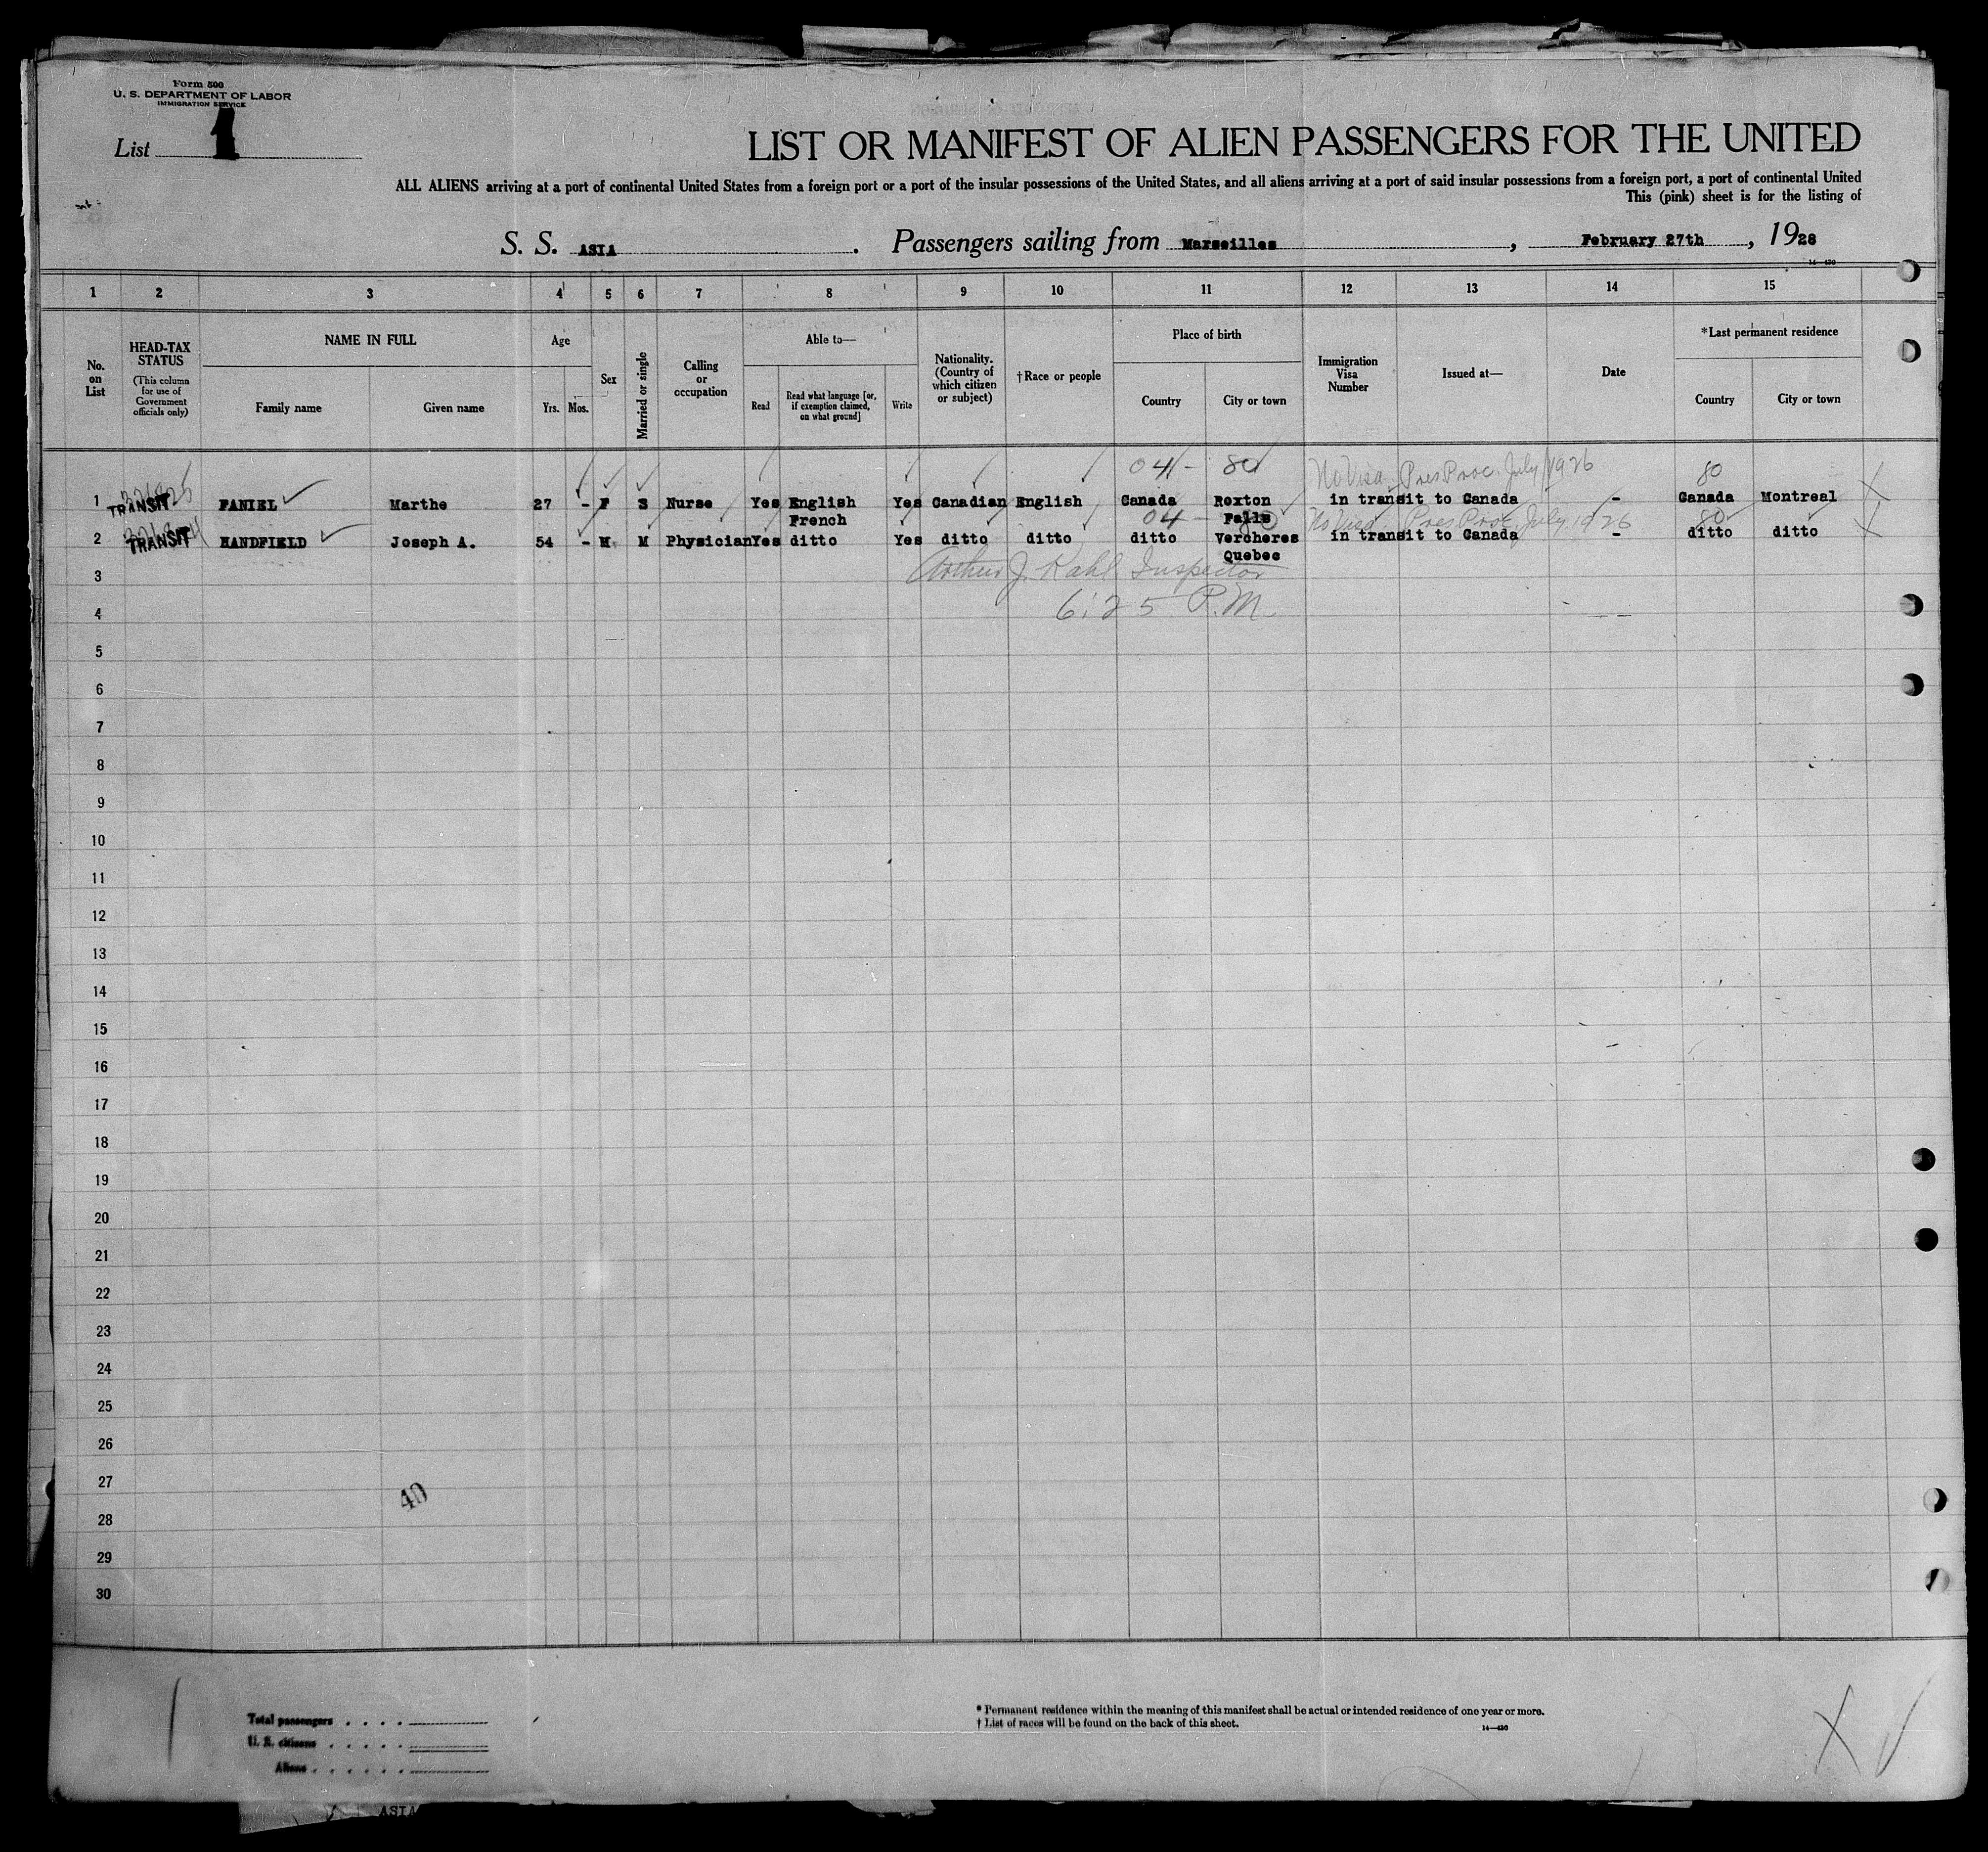 Form 500
U. S. DEPARTMENT OF LABOR
IMMIGRATION SERVICE
List 1
LIST OR MANIFEST OF ALIEN PASSENGERS FOR THE UNITED
ALL ALIENS arriving at a port of continental United States from a foreign port or a port of the insular possessions of the United States, and all aliens arriving at a port of said insular possessions from a foreign port, a port of continental United
This (pink) sheet is for the listing of
S. S. ASIA . Passengers sailing from Marseilles , February 27th , 1928
14—430
1 2 3 4 5 6 7 8 9 10 11 12 13 14 15
No. on List
HEAD-TAX STATUS
(This column for use of Government officials only)
NAME IN FULL
Family name Given name
Age
Yrs. Mos.
Sex
Married or single
Calling or occupation
Able to—
Read
Read what language [or, if exemption claimed, on what ground]
Write
Nationality. (Country of which citizen or subject)
†Race or people
Place of birth
Country City or town
Immigration Visa Number
Issued at—
Date
*Last permanent residence
Country City or town
04 - 80 No Visa Pres Proc. July 1926 80
1 TRANSIT FANIEL Marthe 27 - F S Nurse Yes English Yes Canadian English Canada Roxton in transit to Canada - Canada Montreal
French 04 - Falls 80 No Visa Pres Proc. July 1926 80
2 TRANSIT HANDFIELD Joseph A. 54 - M M Physician Yes ditto Yes ditto ditto ditto Vercheres in transit to Canada - ditto ditto
Quebec
3 Arthur J. Kahl Inspector
4 6:25 P.M.
5
6
7
8
9
10
11
12
13
14
15
16
17
18
19
20
21
22
23
24
25
26
27
40
28
29
30
Total passengers
U. S. citizens
Aliens
* Permanent residence within the meaning of this manifest shall be actual or intended residence of one year or more.
† List of races will be found on the back of this sheet.
14—430
X
ASIA